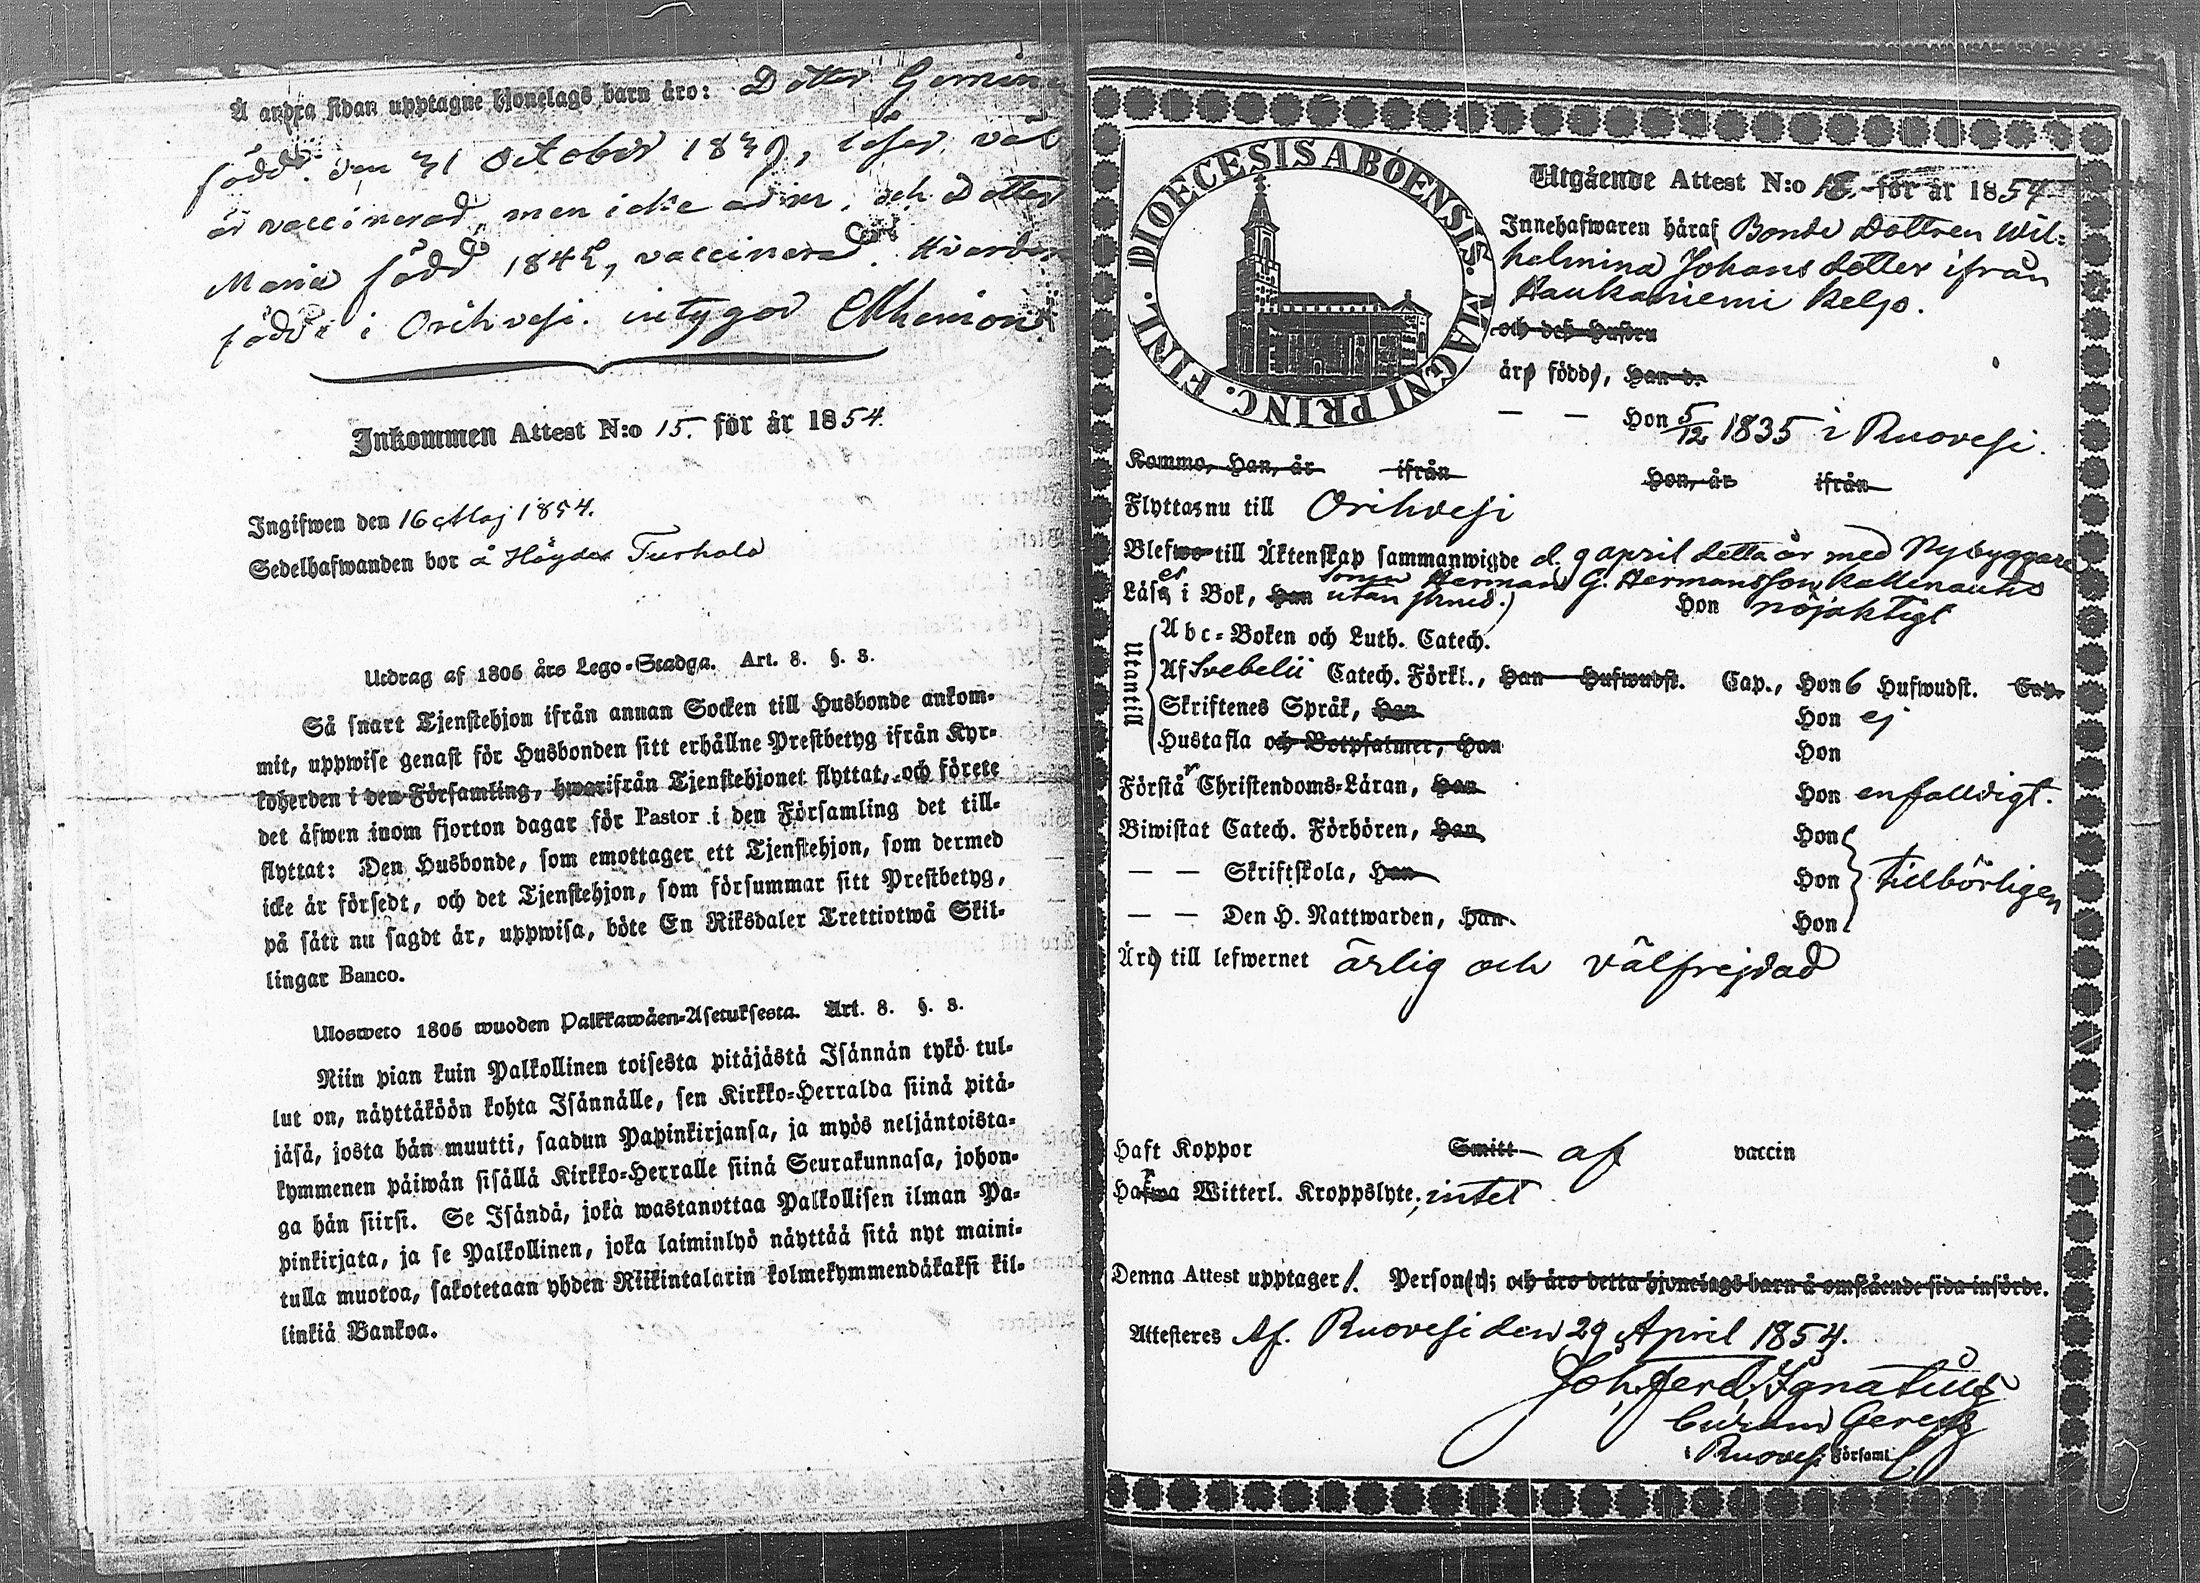 Å andra sidan upptagne hjonelags barn äro: Dotter
född den 31 October 1839, läser väl
är vaccinerad, men icke adm. och Dotter
Maria född 1842, vaccinerad.
födde i Orihvesi. intygar
Inkommen Attest N:o 15. för år 1854.
Ingifwen den 16 Maj 1854.
Sedelhafwanden bor å Höyden Turhala
Utdrag af 1805 års Lego-Stadga. Art. 8. §. 3.
Så snart Tjenstehjon ifrån annan Socken till Husbonde ankom-
mit, uppwise genast för Husbonden sitt erhållne Prestbetyg ifrån Kyr-
koherden i den Församling, hwarifrån Tjenstehjonet flyttat, och förete
det äfwen inom fjorton dagar för Pastor i den Församling det till-
flyttat: Den Husbonde, som emottager ett Tjenstehjon, som dermed
icke är försedt, och det Tjenstehjon, som försummar sitt Prestbetyg,
på sätt nu sagdt är, uppwisa, böte En Riksdaler Trettiotwå Skil-
lingar Banco.
Ulosweto 1805 wuoden Palkkawäen-Asetuksesta. Art. 8. §. 3.
Niin pian kuin Palkollinen toisesta pitäjästä Isännän tykö tul-
lut on, näyttäköön kohta Isännälle, sen Kirkko-Herralda siinä pitä-
jäsä, josta hän muutti, saadun Papinkirjansa, ja myös neljäntoista-
kymmenen päiwän sisällä Kirkko-Herralle siinä Seurakunnasa, johon-
ga hän siirsi. Se Isändä, joka wastanottaa Palkollisen ilman Pa-
pinkirjata, ja se Palkollinen, joka laiminlyö näyttää sitä nyt maini-
tulla muotoa, sakotetaan yhden Riikintalarin kolmekymmendäkaksi kil-
linkiä Bankoa.
DIOECESIS ABOENSIS. MAGNI PRINC. FINL.
Utgående Attest N:o för år 1854.
Innehafwaren häraf Bonde Dottren Wil-
helmina Johans dotter ifrån
Haukaniemi Keljo.
och dess Hustru
äro födde, Han d.
— — Hon 5/12 1835 i Ruovesi.
Komma, Han, år ifrån Hon, år ifrån
Flyttas nu till Orihvesi
Blefwo till Äktenskap sammanwigde d. 9 april detta år med Nybyggare
sonen Herman G. Hermansson Kallenautio
Läser i Bok, Han utan Hon nöjaktigt
Utantill
Abc-Boken och Luth. Catech.
Af Svebelii Catech. Förkl., Han Hufwudst. Cap., Hon 6 Hufwudst. Cap.
Skriftenes Språk, Han Hon ej
Hustafla och Botpsalmer, Han Hon
Förstår Christendoms-Läran, Han Hon enfalldigt.
Biwistat Catech. Förhören, Han Hon
— — Skriftskola, Han Hon tillbörligen
— — Den H. Nattwarden, Han Hon
Äro till lefwernet ärlig och välfrejdad
Haft Koppor Smitt af vaccin
Hafwa Witterl. Kroppslyte; intet
Denna Attest upptager 1. Person(er); och äro detta hjonelags barn å omstående sida införde.
Attesteres Af. Ruovesi den 29 April 1854.
Joh. Ferd. Ignatius
Curam Gerens
i Ruovesi Församl.